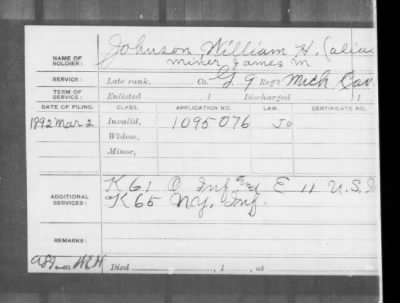 NAME OF SOLDIER: Johnson William H. (alias
Miner James M
SERVICE: Late rank, Co. G 9 Reg't Mich Cav
TERM OF SERVICE: Enlisted , 1 Discharged , 1
DATE OF FILING. CLASS. APPLICATION NO. LAW. CERTIFICATE NO.
1892 Mar 2 Invalid, 1095076
Widow,
Minor,
ADDITIONAL SERVICES: K 61 O Inf E 11 U.S.
K 65 N.Y. Inf.
REMARKS:
Died , 1 , at